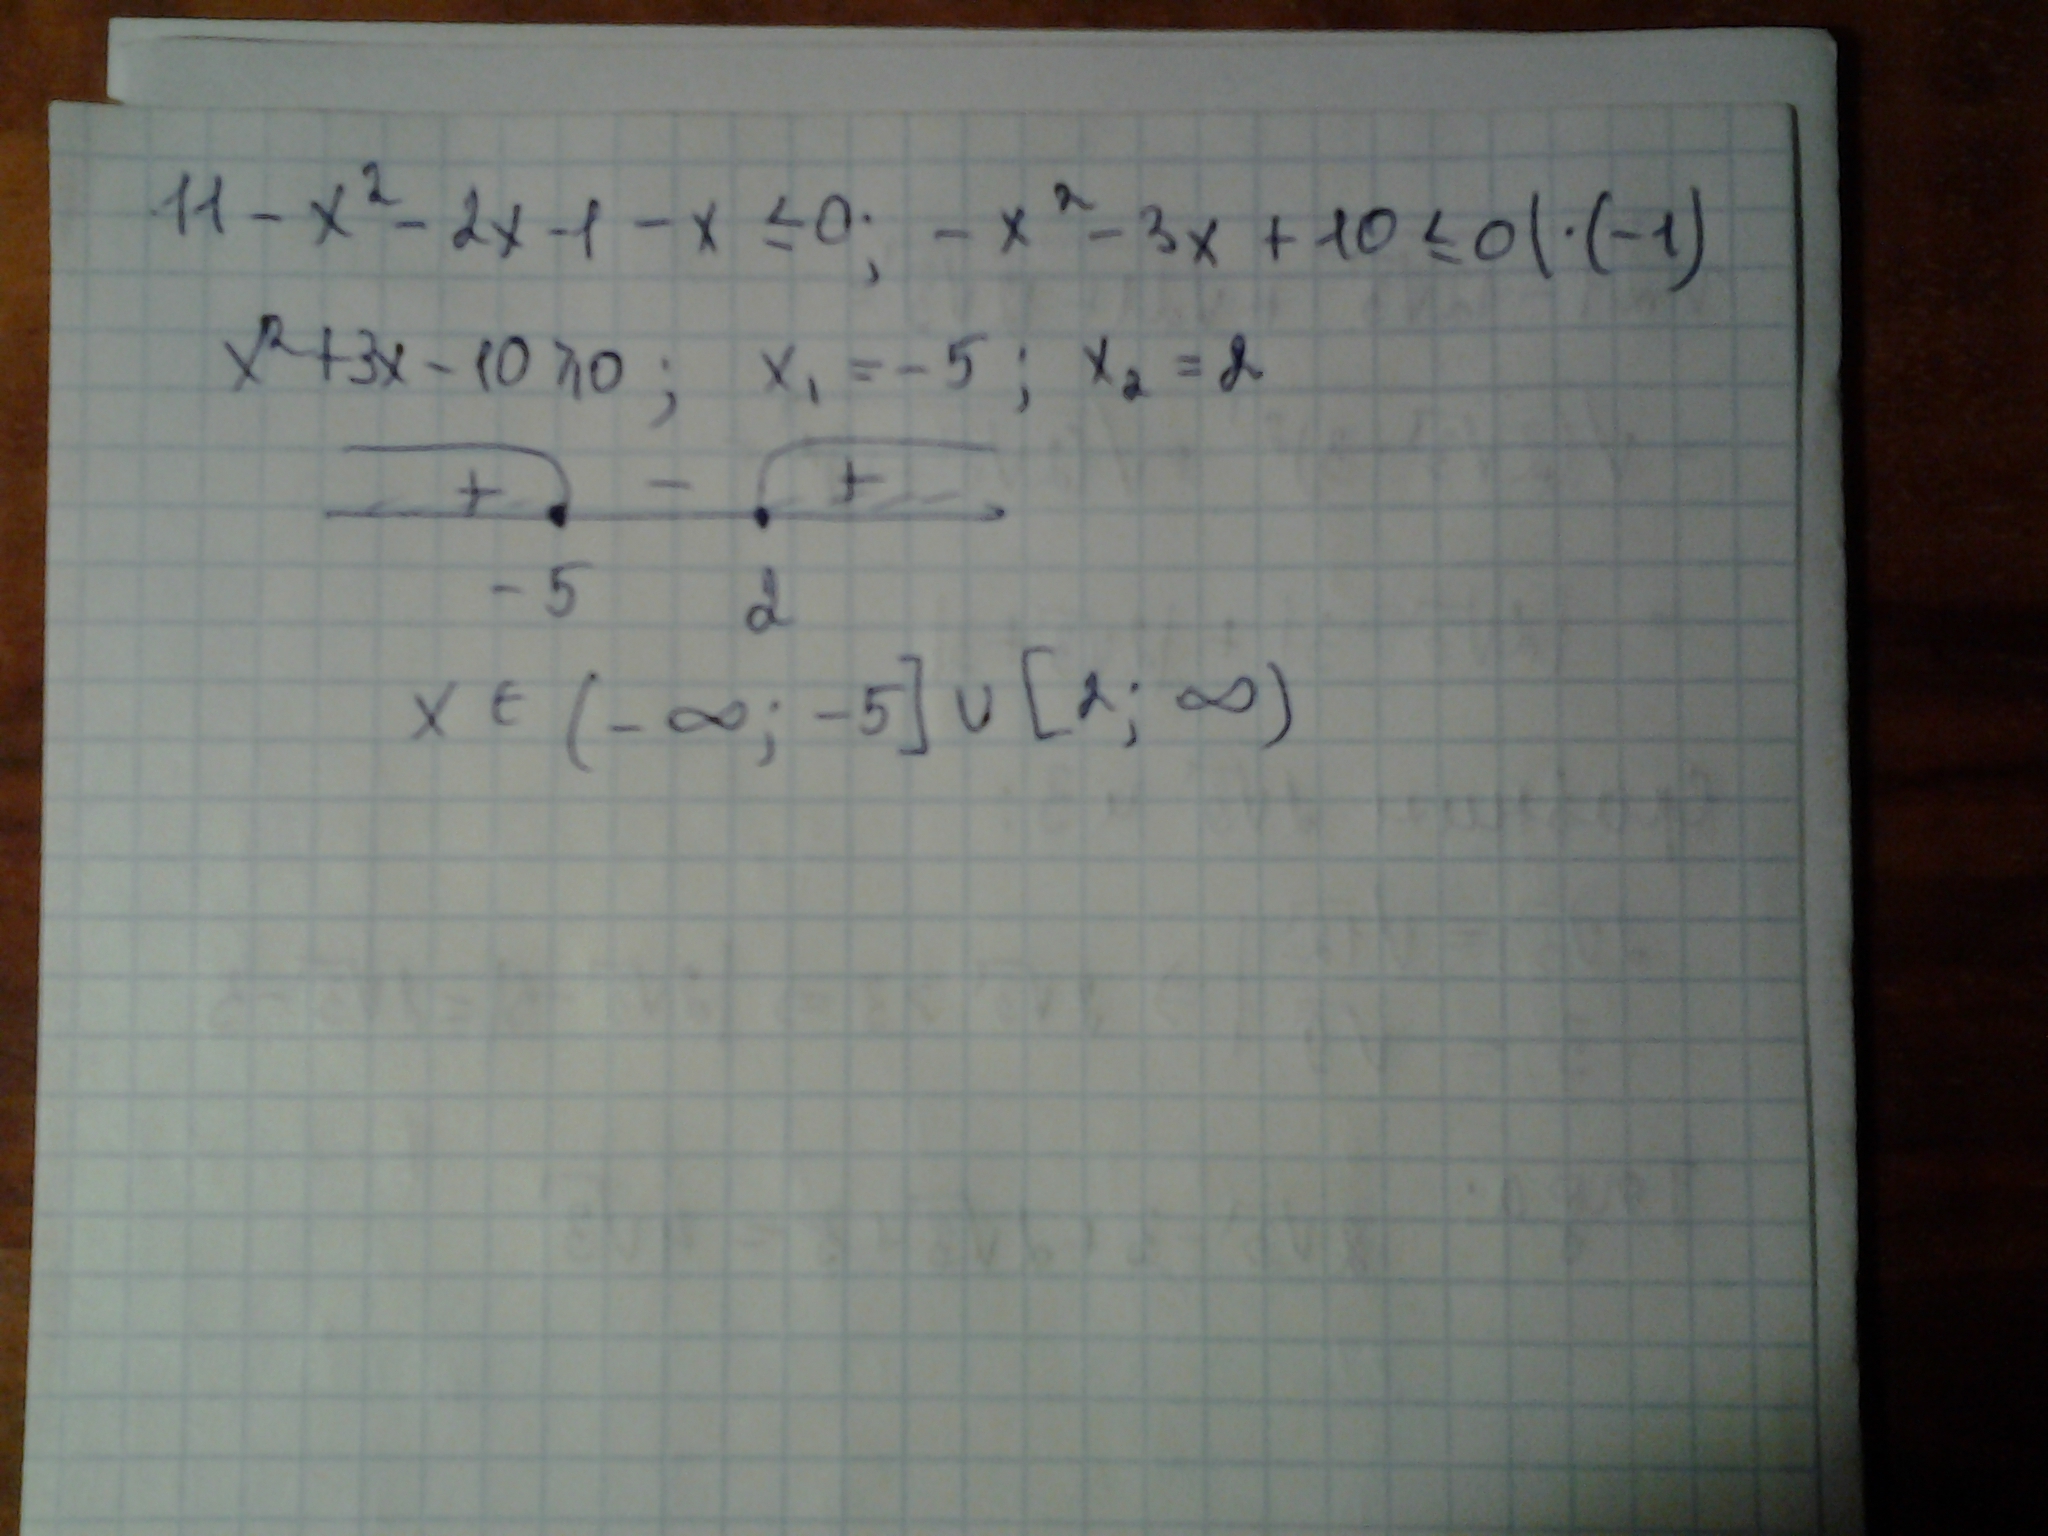 11 - x² - 2x - 1 - x ≤ 0; - x² - 3x + 10 ≤ 0 | · (-1)
x² + 3x - 10 ≥ 0; x₁ = -5; x₂ = 2
+ - +
-5 2
x ∈ (-∞; -5] ∪ [2; ∞)